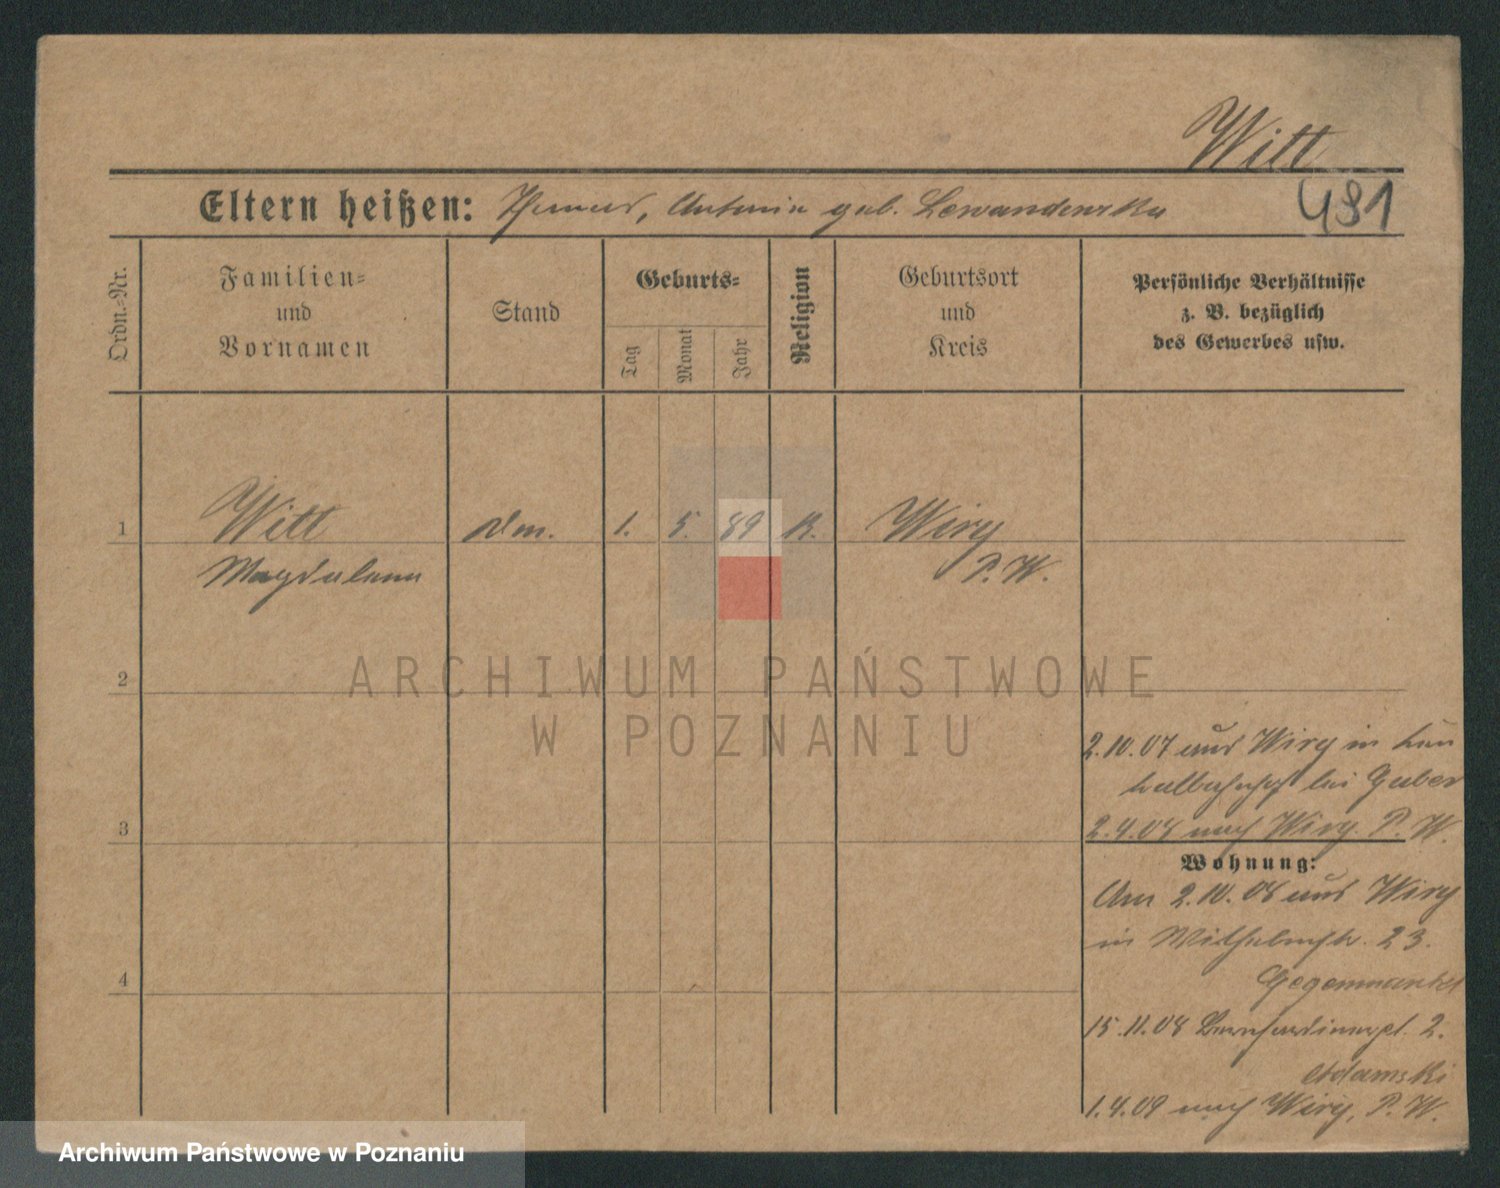 Witt
Eltern heißen: Thomas, Antonie geb. Lewandowska
481
Ordn.-Nr.
Familien-
und
Vornamen
Stand
Geburts-
Tag
Monat
Jahr
Religion
Geburtsort
und
Kreis
Persönliche Verhältnisse
z. B. bezüglich
des Gewerbes usw.
1 Witt 1. 5. 89 K. Wiry
Magdalena P. W.
2
ARCHIWUM PAŃSTWOWE
W POZNANIU
2.10.07 aus Wiry in
bei
3
2.4.08 nach Wiry P. W.
Wohnung:
Am 2.10.08 aus Wiry
in Wilhelmstr. 23.
4
15.11.08 Bernhardinerpl. 2.
Adamski
1.4.09 nach Wiry, P. W.
Archiwum Państwowe w Poznaniu